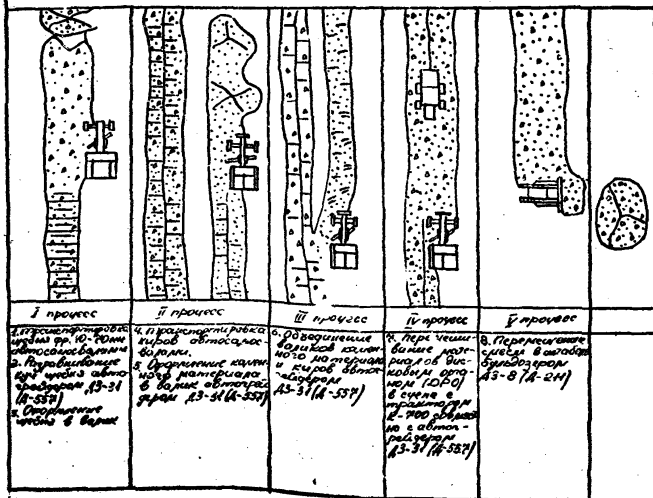 I процесс
II процесс
III процесс
IV процесс
V процесс
1. Транспортировка
щебня фр. 10-70мм
автосамосвалами
2. Разравнивание
куч щебня авто-
грейдером ДЗ-31
(Д-557)
3. Оформление
щебня в валик
4. Транспортировка
киров автосамос-
валами.
5. Оформление камен-
ного материала
в валик автогрей-
дером ДЗ-31 (Д-557)
6. Объединение
валиков камен-
ного материала
и киров авто-
грейдером
ДЗ-31 (Д-557)
7. Перемеши-
вание мате-
риалов дис-
ковым орга-
ном (ДРО)
в сцепе с
трактором
К-700
но с автог-
рейдером
ДЗ-31 (Д-557)
8. Перемещение
смеси в
бульдозером
ДЗ-8 (Д-271)